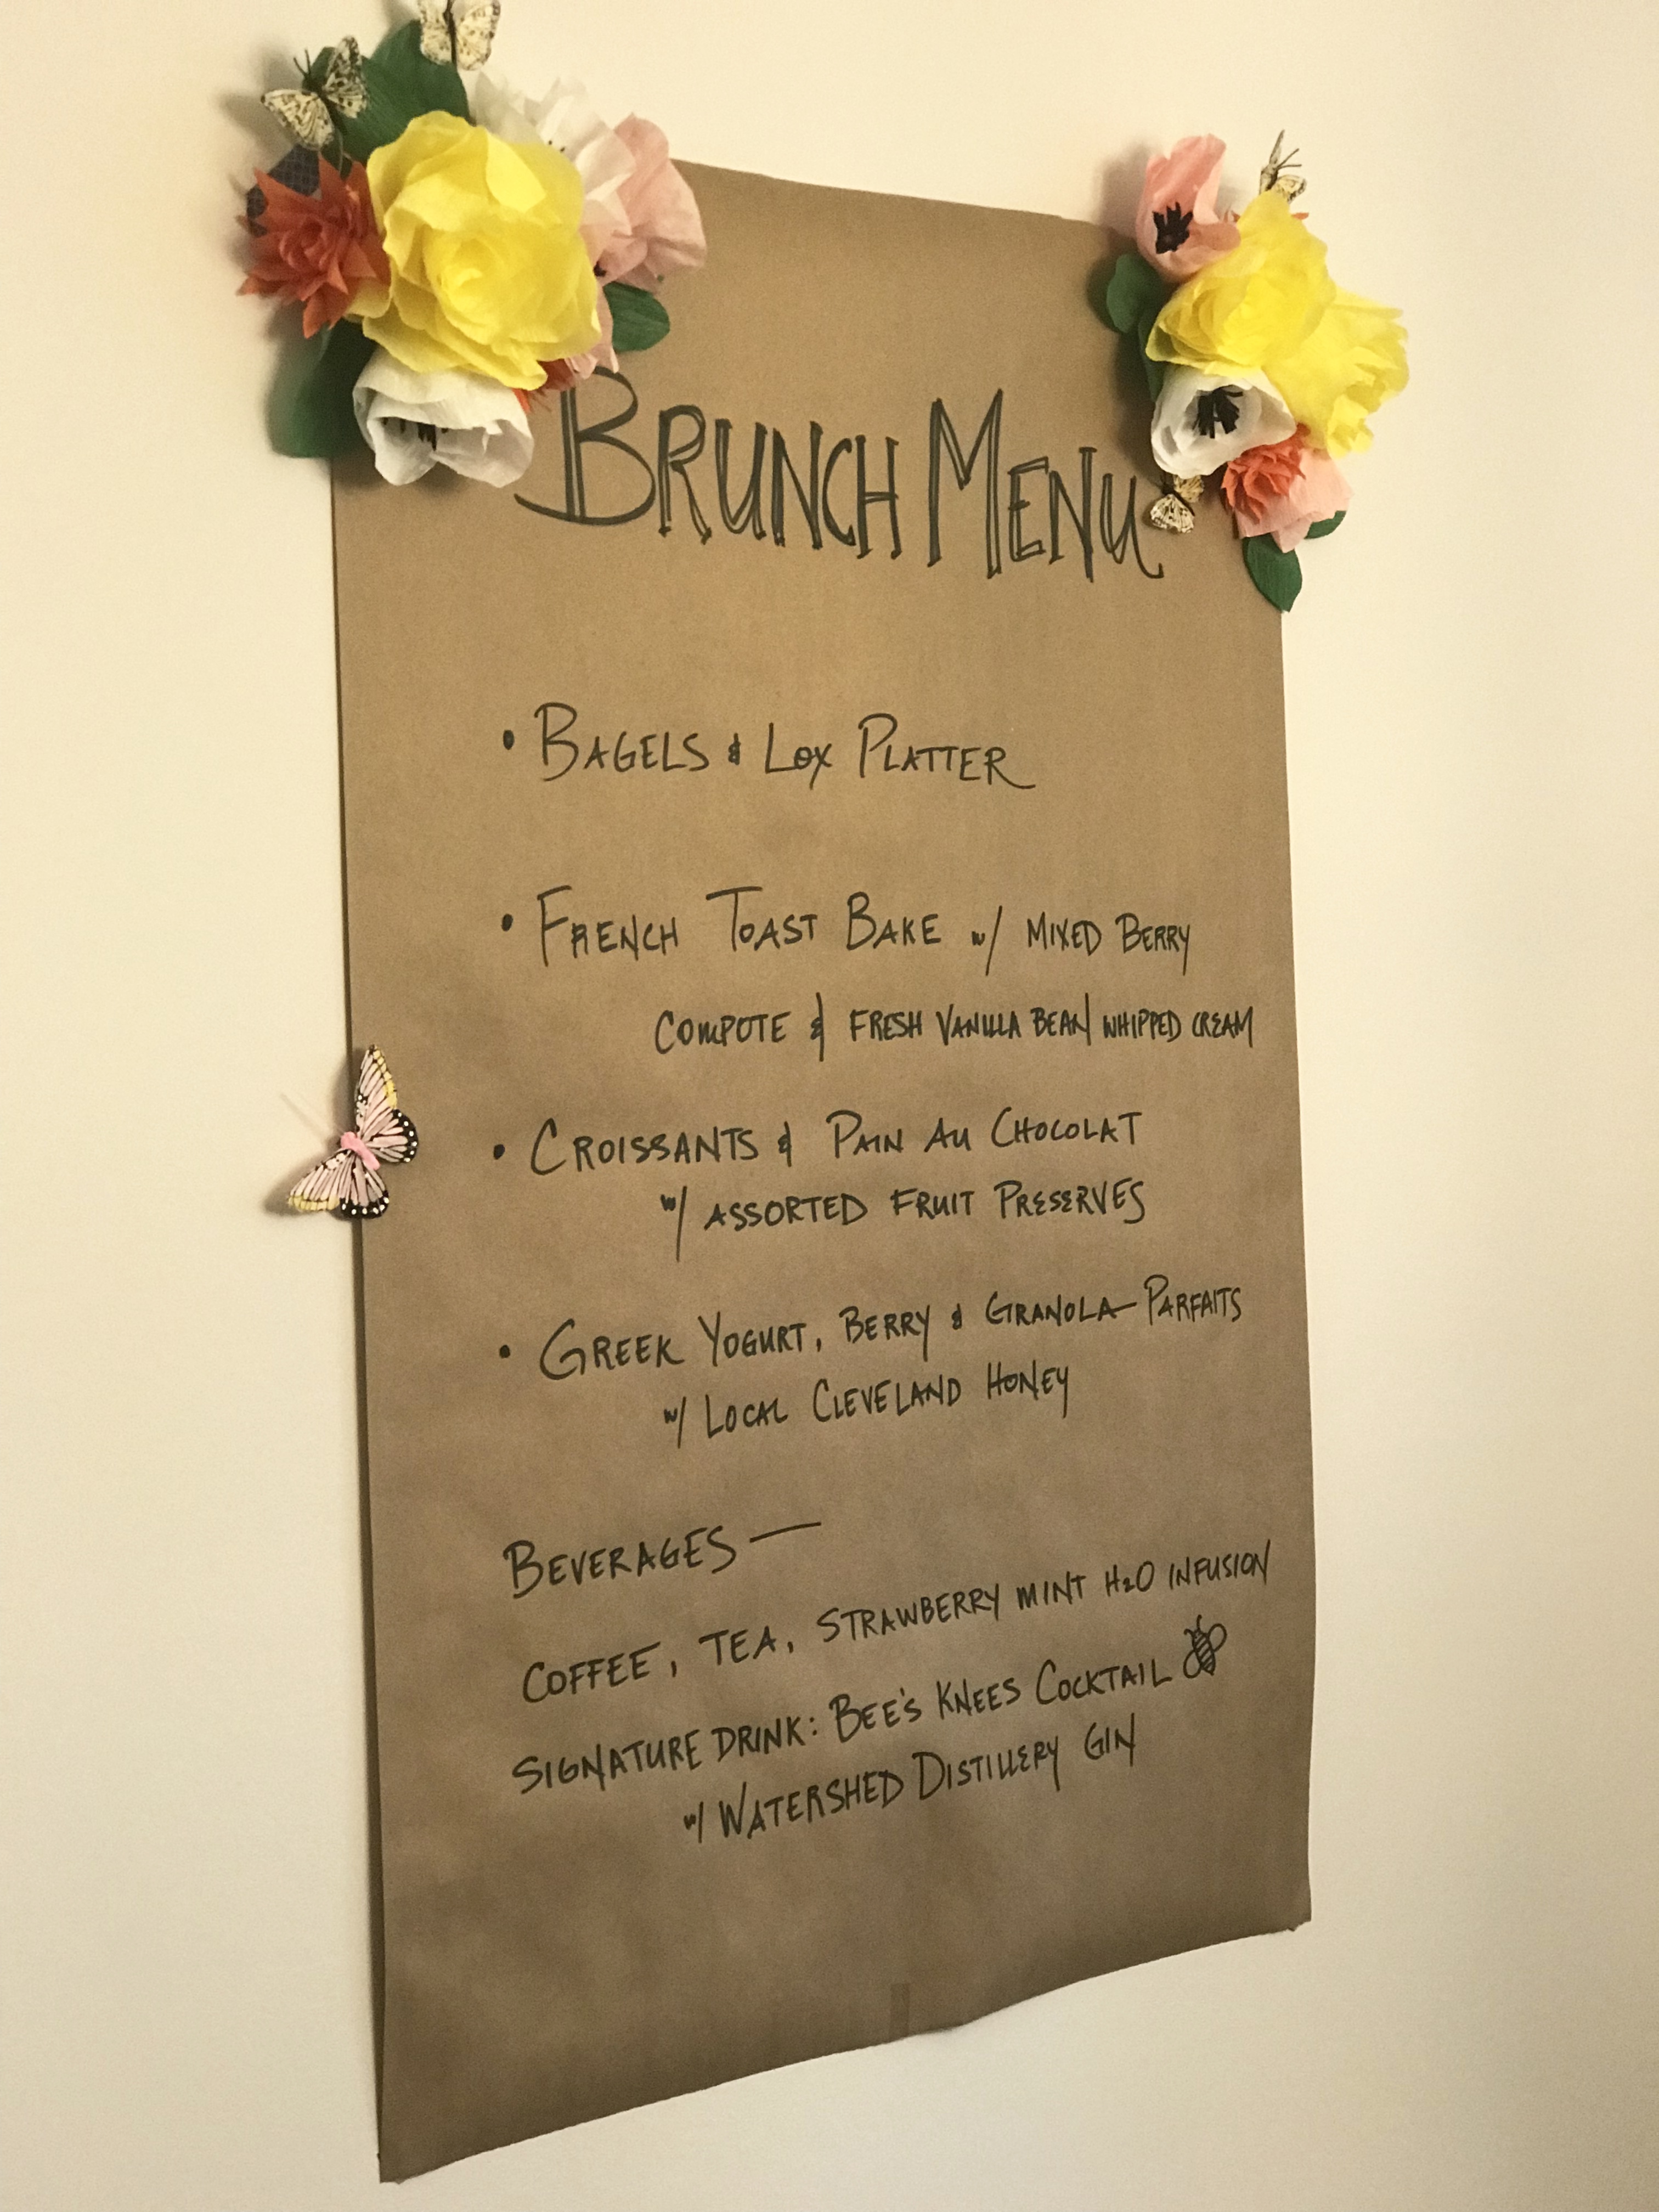 BRUNCH MENU
• BAGELS & LOX PLATTER
• FRENCH TOAST BAKE w/ MIXED BERRY
COMPOTE & FRESH VANILLA BEAN WHIPPED CREAM
• CROISSANTS & PAIN AU CHOCOLAT
w/ ASSORTED FRUIT PRESERVES
• GREEK YOGURT, BERRY & GRANOLA PARFAITS
w/ LOCAL CLEVELAND HONEY
BEVERAGES —
COFFEE, TEA, STRAWBERRY MINT H2O INFUSION
SIGNATURE DRINK: BEE'S KNEES COCKTAIL
w/ WATERSHED DISTILLERY GIN